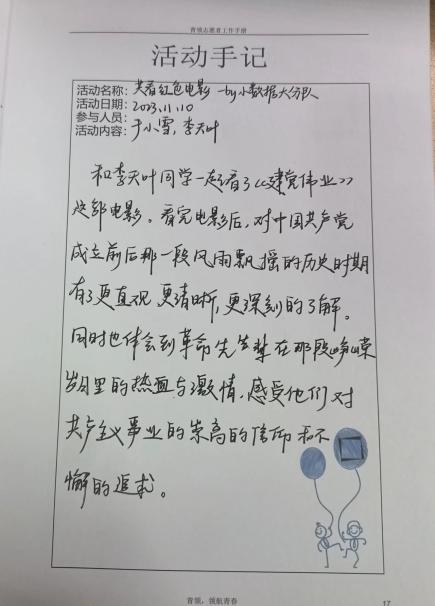 青领志愿者工作手册
活动手记
活动名称：共看红色电影 -by小数据大分队
活动日期：2023.11.10
参与人员：
活动内容：于小雪，李天叶
和李天叶同学一起看了《建党伟业》
这部电影。看完电影后，对中国共产党
成立前后那一段风雨飘摇的历史时期
有了更直观、更清晰，更深刻的了解。
同时也体会到革命先辈在那段峥嵘
岁月里的热血与激情，感受他们对
共产主义事业的崇高的信仰和不
懈的追求。
青领，领航青春
17